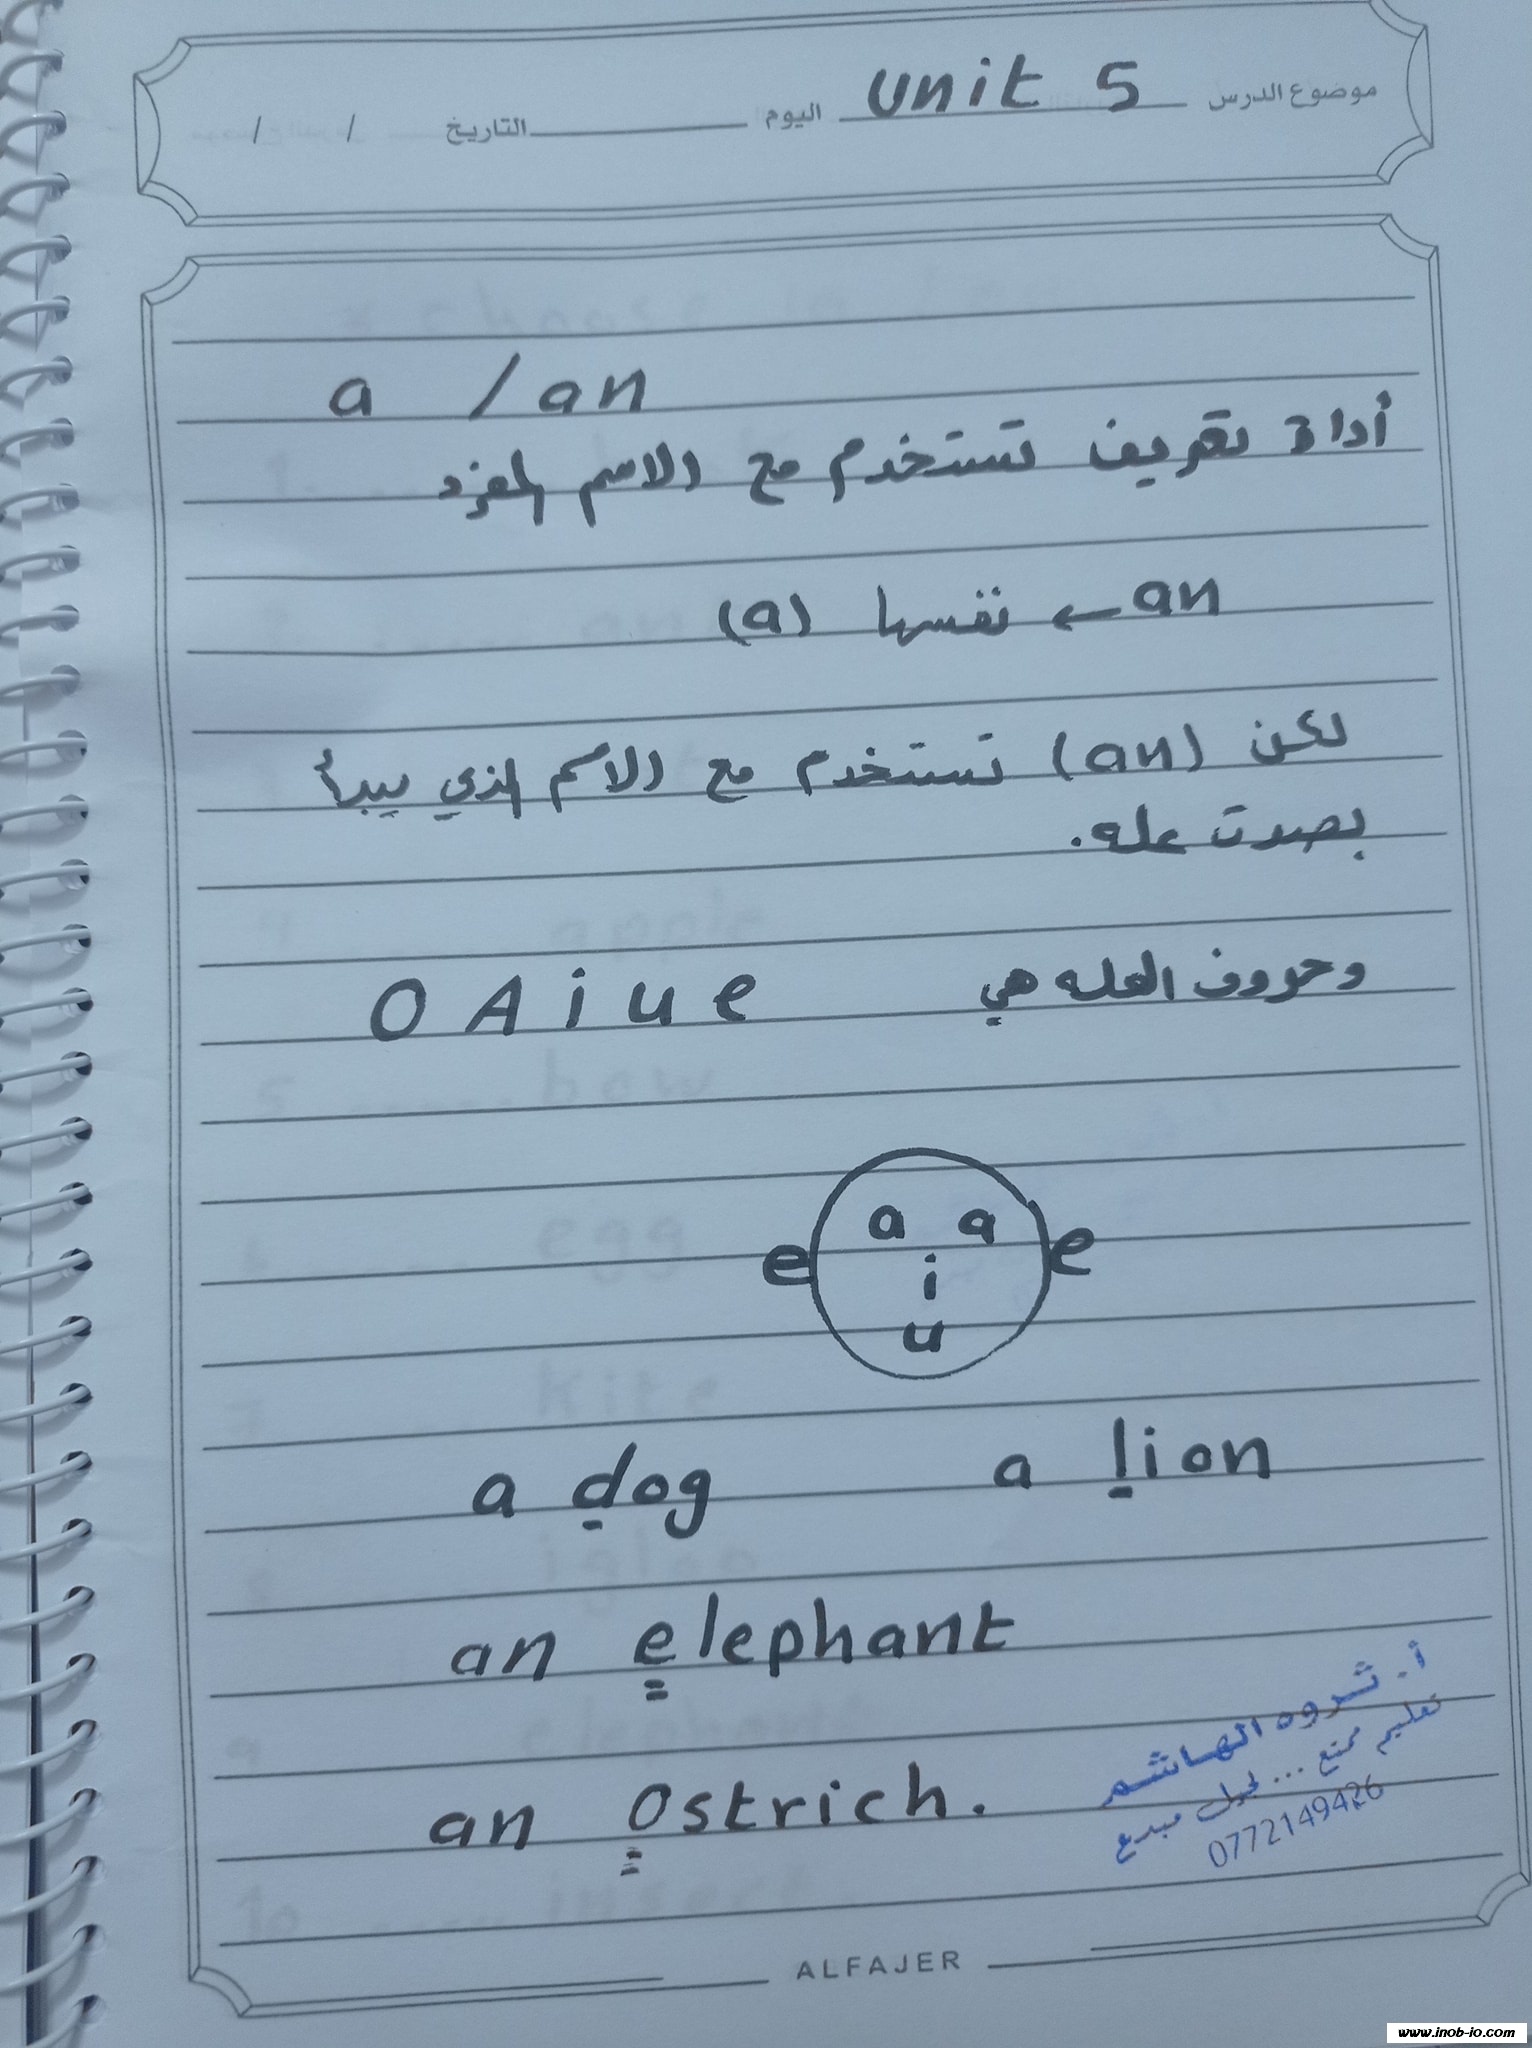 موضوع الدرس unit 5 اليوم التاريخ / /
a / an
أداة تعريف تستخدم مع الاسم المفرد
an ← نفسها (a)
لكن (an) تستخدم مع الاسم الذي يبدأ
بصوت عله.
وحروف العله هي O A i u e
a a
e i e
u
a dog a lion
an elephant
an Ostrich.
أ. ثروه الهاشم
تعليم ممتع ... لجيل مبدع
0772149426
ALFAJER
www.inob-io.com